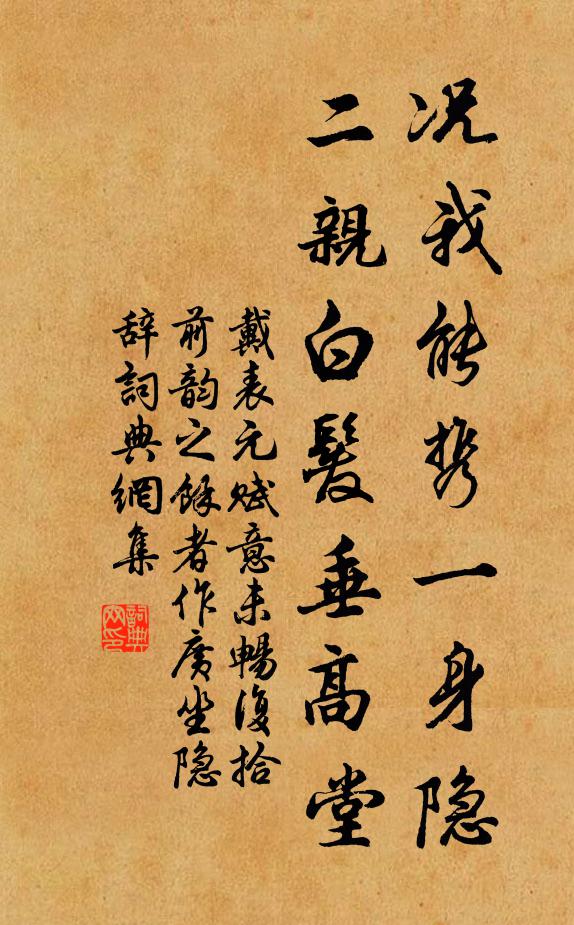 况我能携一身隐
二親白髮垂高堂
戴表元赋意未暢復拾
前韵之餘者作廣坐隐
辞詞典網集
詞典
网印